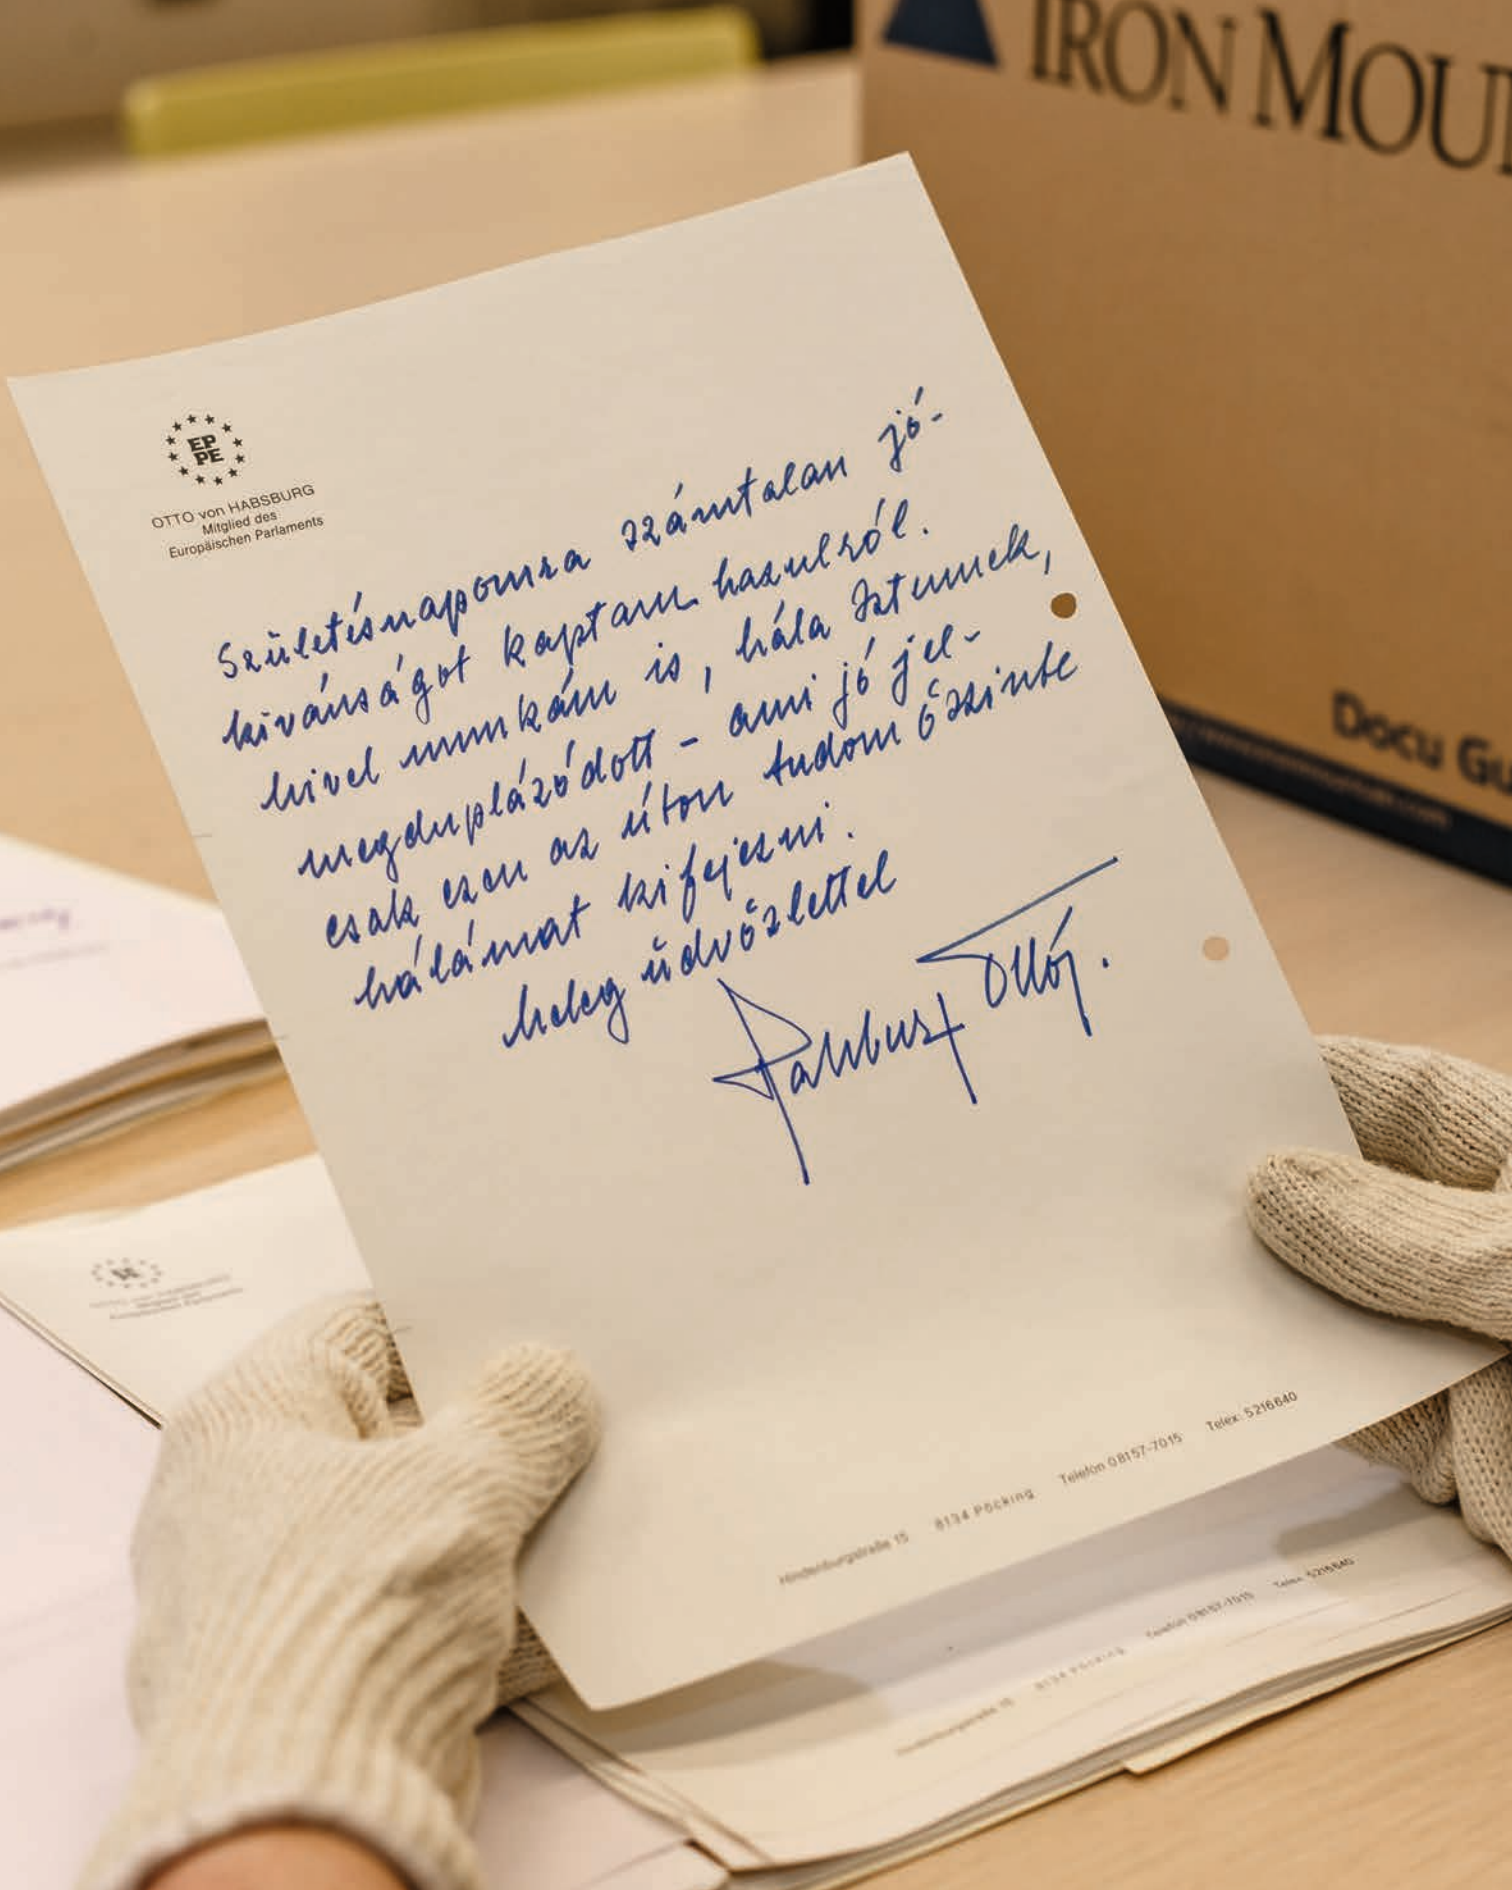 IRON MOU
EP
PE
OTTO von HABSBURG
Mitglied des
Europäischen Parlaments
Születésnapomra számtalan jó-
kivánságot kaptam hazulról.
Mivel munkám is, hála Istennek,
megduplázódott - ami jó jel-
csak ezen az úton tudom őszinte
hálámat kifejezni.
Meleg üdvözlettel
Habsburg Ottó.
Docu Gu
Hindenburgstraße 15 8134 Pöcking Telefon 08157-7015 Telex: 5216640
Hindenburgstraße 15 8134 Pöcking Telefon 08157-7015 Telex: 5216640